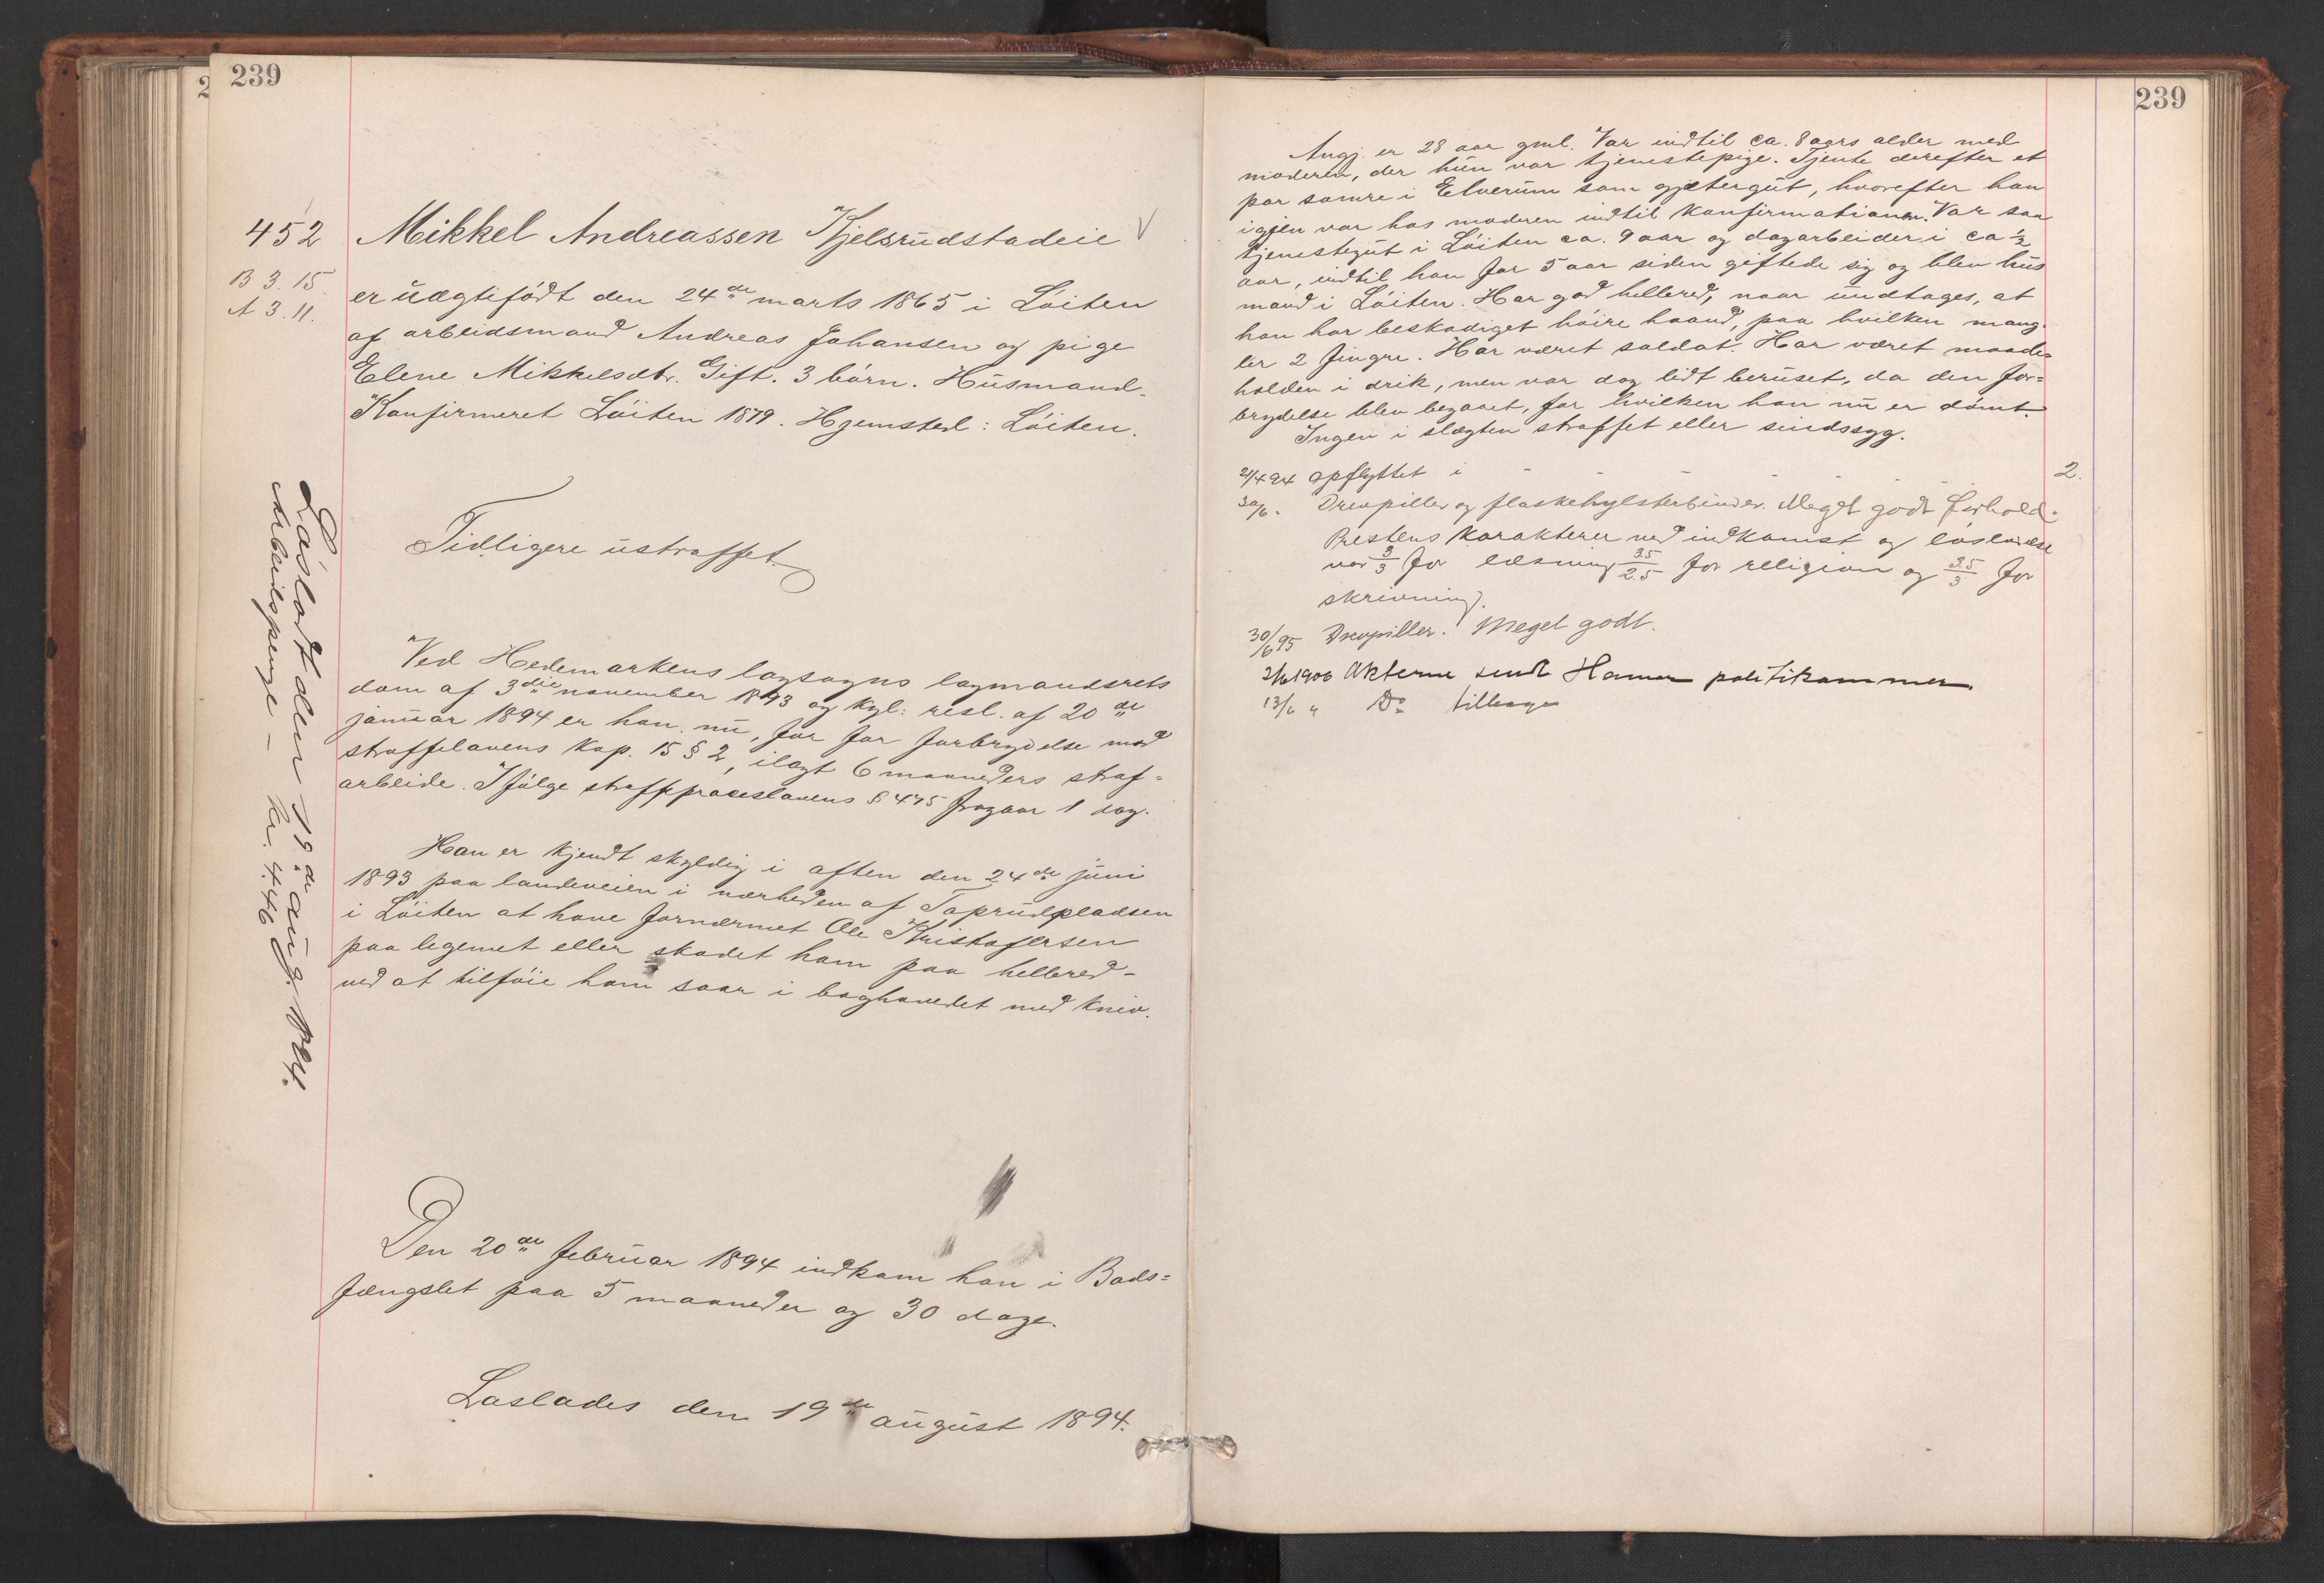 239
452 Mikkel Andreassen Kjelsrudstadeie V
B 3. 15.
A 3. 11.
er uægtefødt den 24de marts 1865 i Løiten
af arbeidsmand Andreas Johansen og pige
Elene Mikkelsdtr. Gift. 3 børn. Husmand.
Konfirmeret Løiten 1879. Hjemsted: Løiten.
Tidligere ustraffet.
Ved Hedemarkens lagsogns lagmandsrets
dom af 3die november 1893 og kgl. resl. af 20de
januar 1894 er han nu, for for forbrydelse mod
straffelovens Kap. 15 § 2, ilagt 6 maaneders straf=
arbeide. Ifølge straffproceslovens § 475 fragaar 1 dag.
Han er kjendt skyldig i aften den 24de juni
1893 paa landeveien i nærheden af Taprudpladsen
i Løiten at have fornærmet Ole Kristofersen
paa legemet eller skadet ham paa helbred-
ved at tilføie ham saar i baghovedet med kniv.
Den 20de februar 1894 indkom han i Bods=
fængslet paa 5 maaneder og 30 dage.
Løslades den 19de august 1894.
Løsladt den 19de aug. 1894.
Arbeidspenge – kr. 4.46
239
Angj. er 28 aar gml. Var indtil ca. 8 aars alder med
moderen, der hun var tjenestepige. Tjente derefter et
par somre i Elverum som gjætergut, hvorefter han
igjen var hos moderen indtil konfirmationen. Var saa
tjenestegut i Løiten ca. 9 aar og dagarbeider i ca ½
aar, indtil han for 5 aar siden giftede sig og blev hus
mand i Løiten. Har god helbred, naar undtages, at
han har beskadiget høire haand, paa hvilken mang-
ler 2 fingre. Har været soldat. Har været maade=
holden i drik, men var dog lidt beruset, da den for=
brydelse blev begaaet, for hvilken han nu er dømt.
Ingen i slægten straffet eller sindssyg.
21/4 94 opflyttet i - - - - 2.
30/6. Drevpiller og flaskehylsterbinder. Meget godt forhold.
Prestens karakterer ved indkomst og løsladelse
var 3/3 for læsning 3.5/2.5 for religion og 3.5/3 for
skrivning.
30/6 95 Drevpiller. Meget godt.
2/6 1906 Akterne sendt Hamar politikammer.
13/6 " Do tilbage